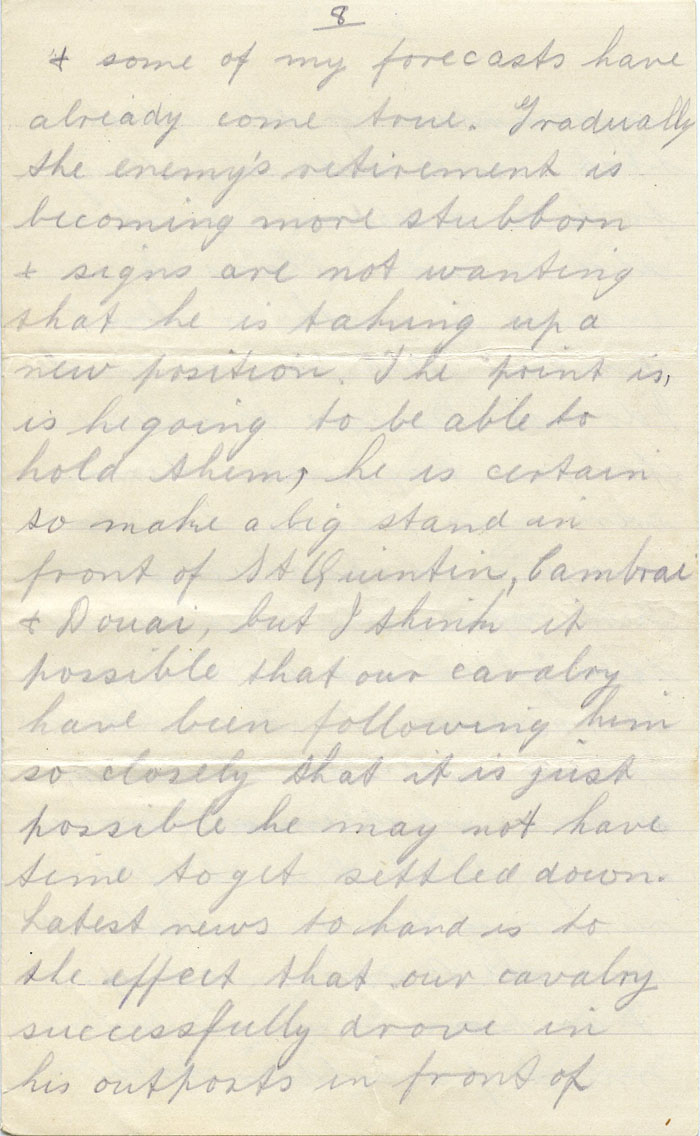 8
& some of my forecasts have
already come true. Gradually
the enemy's retirement is
becoming more stubborn
& signs are not wanting
that he is taking up a
new position. The point is,
is he going to be able to
hold them, he is certain
to make a big stand in
front of St Quintin, Cambrai
& Douai, but I think it
possible that our cavalry
have been following him
so closely that it is just
possible he may not have
time to get settled down.
Latest news to hand is to
the effect that our cavalry
successfully drove in
his outposts in front of